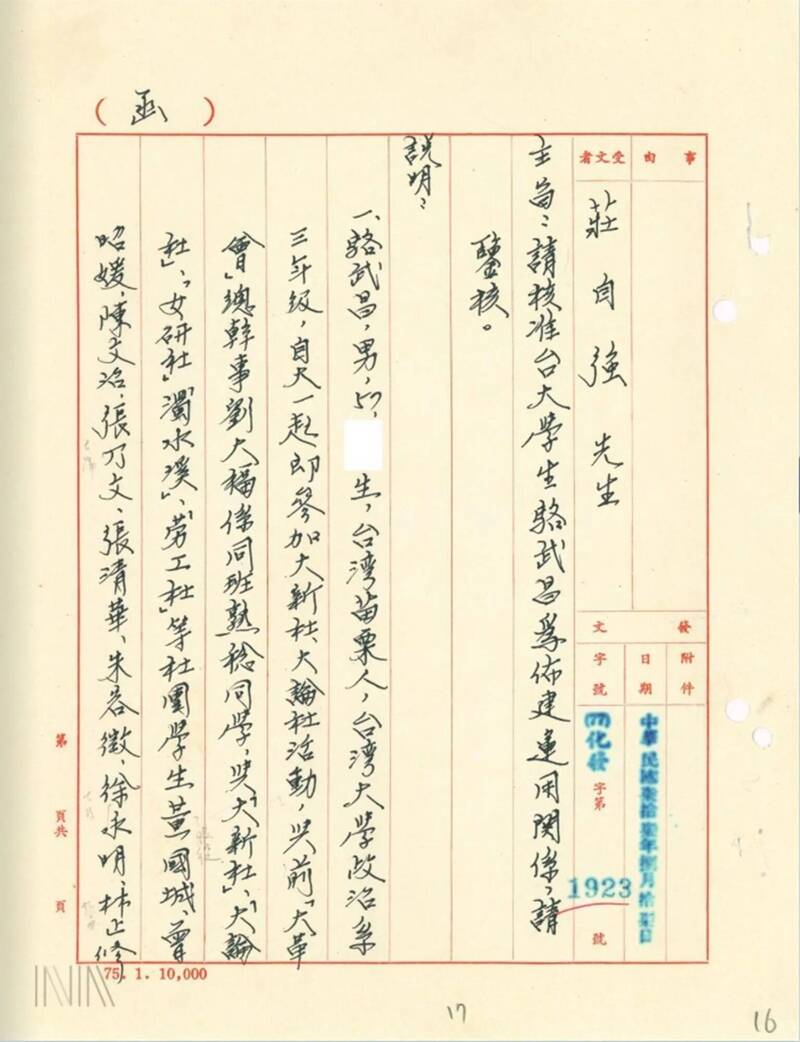 (函)
事由
受文者
莊自強先生
發文
附件
日期
字號
中華民國柒拾柒年捌月拾
四化發
字第
1923
號
主旨：請核准台大學生駱武昌為佈建運用關係，請
鑒核。
說明：
一、駱武昌，男，57、
生，台灣苗栗人，台灣大學政治系
三年級，自大一起即參加大新社、大論社活動，與前「大革
會」總幹事劉大福係同班熟稔同學，與「大新社」、「大論
社」、「女研社」「濁水溪」、「勞工社」等社團學生黃國城、曾
昭媛、陳文治、張乃文、張清華、朱容徵、徐永明、林正修
第 頁共 頁
75. 1. 10,000
17
16